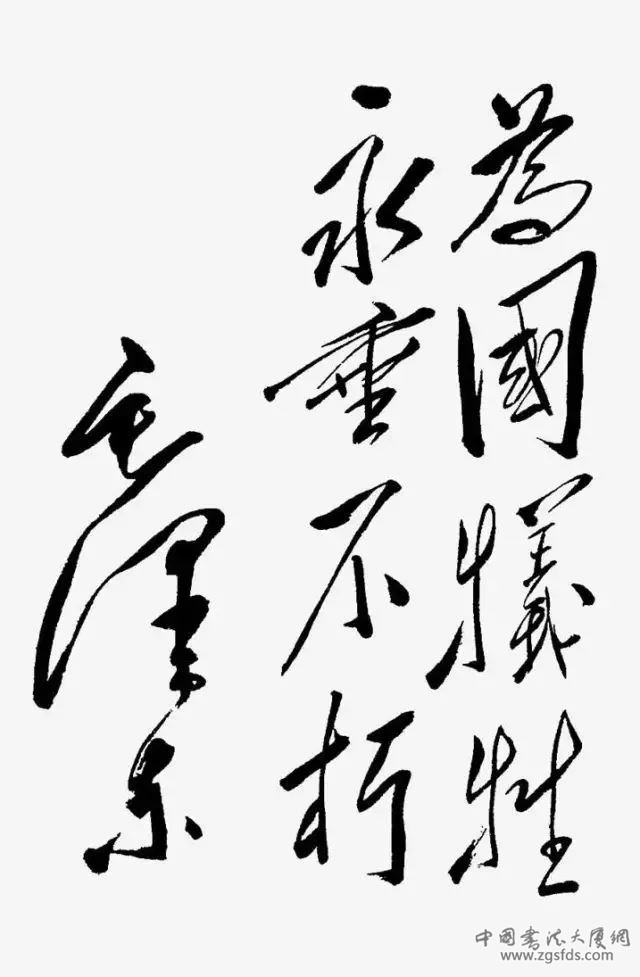 為國犧牲
永垂不朽
毛澤东
中国书法大厦網
www.zgsfds.com